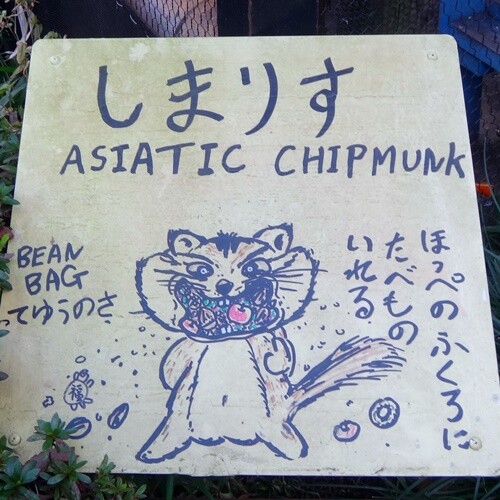 しまりす
ASIATIC CHIPMUNK
ほっぺのふくろに
たべもの
いれる
BEAN
BAG
ってゆうのさ
福